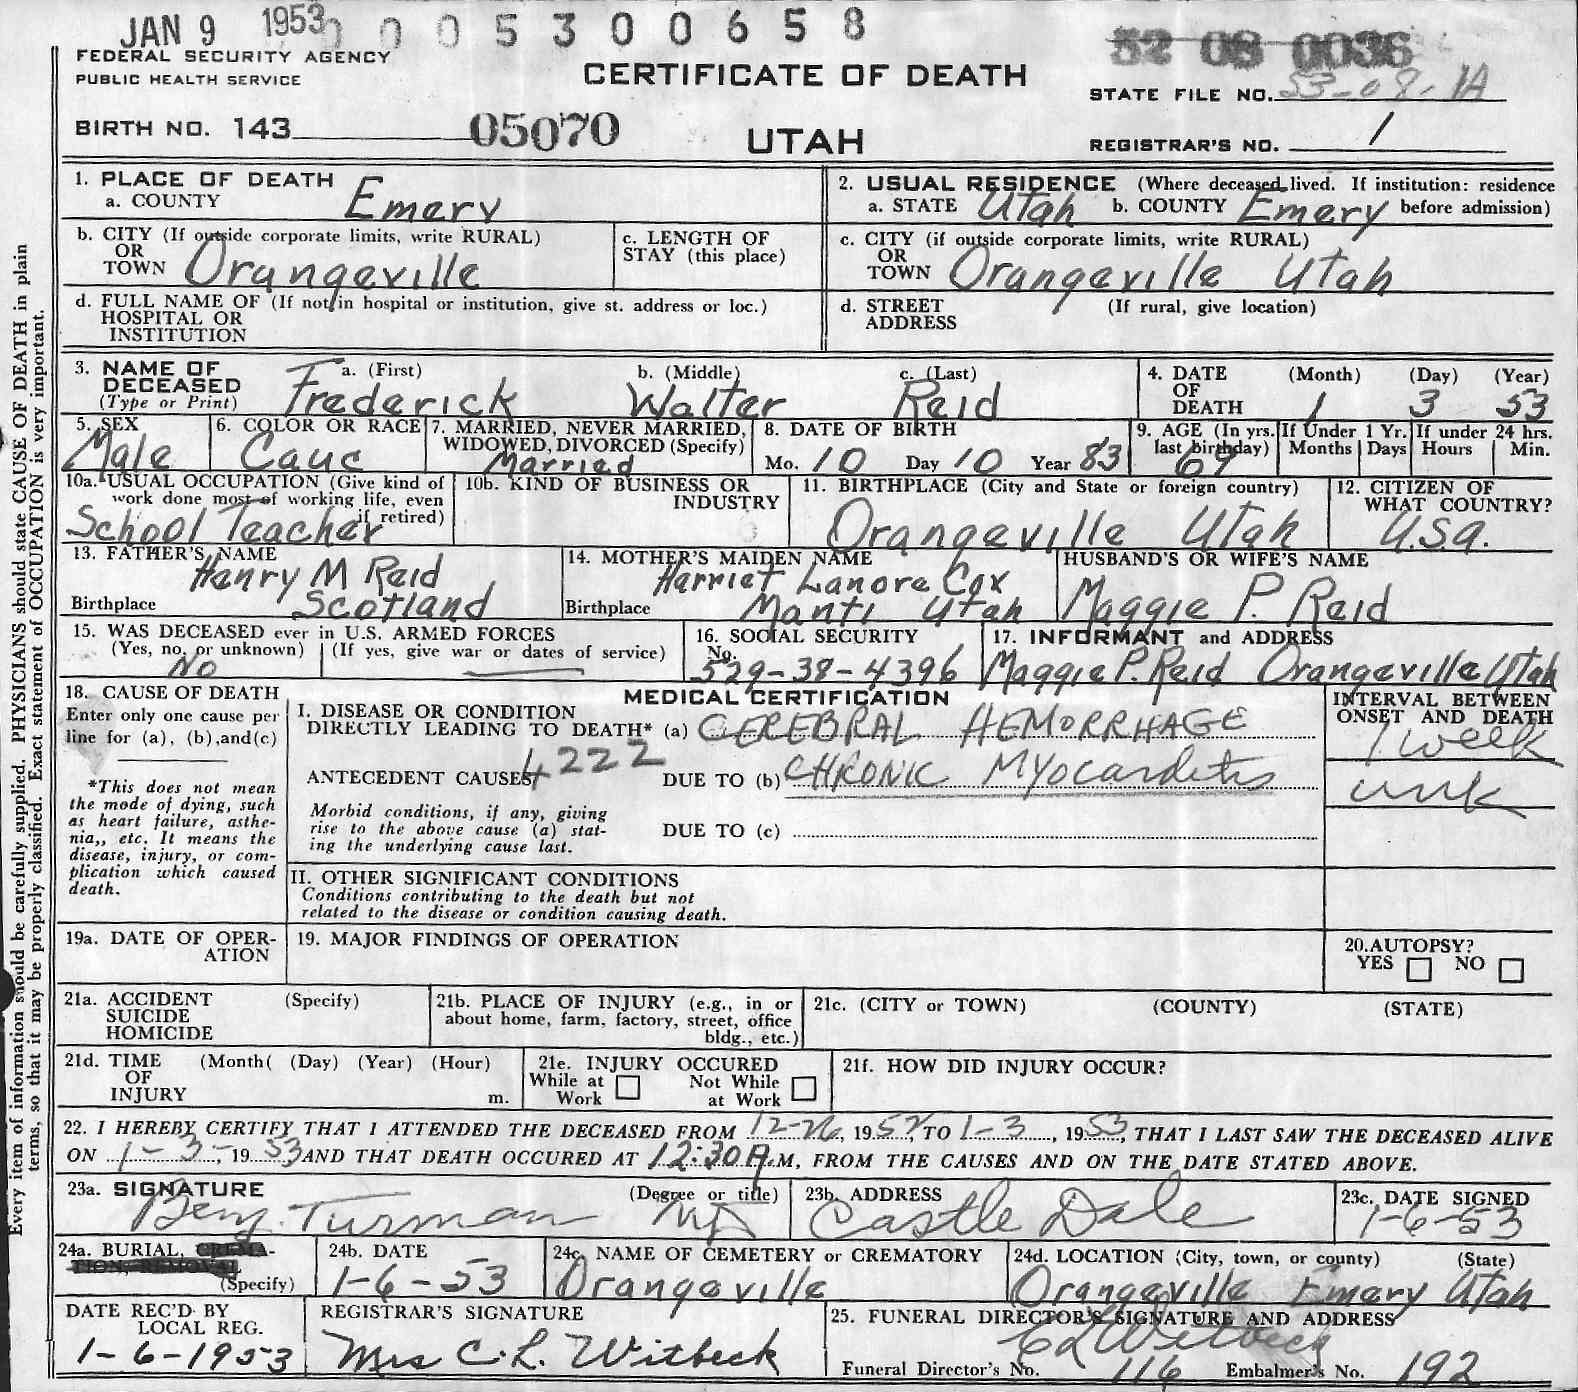 JAN 9 1953 0 0 5 3 0 0 6 5 8
52 08 0036
FEDERAL SECURITY AGENCY
PUBLIC HEALTH SERVICE
CERTIFICATE OF DEATH
STATE FILE NO. 53-08-1A
BIRTH NO. 143 05070
UTAH
REGISTRAR'S NO. 1
Every item of information should be carefully supplied. PHYSICIANS should state CAUSE OF DEATH in plain
terms, so that it may be properly classified. Exact statement of OCCUPATION is very important.
1. PLACE OF DEATH
a. COUNTY Emery
2. USUAL RESIDENCE (Where deceased lived. If institution: residence
a. STATE Utah b. COUNTY Emery before admission)
b. CITY (If outside corporate limits, write RURAL)
OR
TOWN Orangeville
c. LENGTH OF
STAY (this place)
c. CITY (if outside corporate limits, write RURAL)
OR
TOWN Orangeville Utah
d. FULL NAME OF (If not in hospital or institution, give st. address or loc.)
HOSPITAL OR
INSTITUTION
d. STREET (If rural, give location)
ADDRESS
3. NAME OF
DECEASED
(Type or Print)
a. (First) b. (Middle) c. (Last)
Frederick Walter Reid
4. DATE (Month) (Day) (Year)
OF
DEATH 1 3 53
5. SEX
Male
6. COLOR OR RACE
Cauc
7. MARRIED, NEVER MARRIED,
WIDOWED, DIVORCED (Specify)
Married
8. DATE OF BIRTH
Mo. 10 Day 10 Year 83
9. AGE (In yrs.
last birthday)
69
If Under 1 Yr.
Months Days
If under 24 hrs.
Hours Min.
10a. USUAL OCCUPATION (Give kind of
work done most of working life, even
if retired)
School Teacher
10b. KIND OF BUSINESS OR
INDUSTRY
11. BIRTHPLACE (City and State or foreign country)
Orangeville Utah
12. CITIZEN OF
WHAT COUNTRY?
U.S.A.
13. FATHER'S NAME
Henry M Reid
Birthplace Scotland
14. MOTHER'S MAIDEN NAME
Harriet Lanora Cox
Birthplace Manti Utah
HUSBAND'S OR WIFE'S NAME
Maggie P. Reid
15. WAS DECEASED ever in U.S. ARMED FORCES
(Yes, no, or unknown) (If yes, give war or dates of service)
No
16. SOCIAL SECURITY
No.
529-38-4396
17. INFORMANT and ADDRESS
Maggie P. Reid Orangeville Utah
18. CAUSE OF DEATH
Enter only one cause per
line for (a), (b), and (c)
*This does not mean
the mode of dying, such
as heart failure, asthe-
nia,, etc. It means the
disease, injury, or com-
plication which caused
death.
MEDICAL CERTIFICATION
I. DISEASE OR CONDITION
DIRECTLY LEADING TO DEATH* (a) CEREBRAL HEMORRHAGE
4222
ANTECEDENT CAUSES DUE TO (b) CHRONIC Myocarditis
Morbid conditions, if any, giving
rise to the above cause (a) stat-
ing the underlying cause last.
DUE TO (c)
INTERVAL BETWEEN
ONSET AND DEATH
1 week
unk
II. OTHER SIGNIFICANT CONDITIONS
Conditions contributing to the death but not
related to the disease or condition causing death.
19a. DATE OF OPER-
ATION
19. MAJOR FINDINGS OF OPERATION
20. AUTOPSY?
YES NO
21a. ACCIDENT (Specify)
SUICIDE
HOMICIDE
21b. PLACE OF INJURY (e.g., in or
about home, farm, factory, street, office
bldg., etc.)
21c. (CITY or TOWN) (COUNTY) (STATE)
21d. TIME (Month( (Day) (Year) (Hour)
OF
INJURY m.
21e. INJURY OCCURED
While at Work
Not While at Work
21f. HOW DID INJURY OCCUR?
22. I HEREBY CERTIFY THAT I ATTENDED THE DECEASED FROM 12-26, 1952, TO 1-3, 1953, THAT I LAST SAW THE DECEASED ALIVE
ON 1-3-, 1953 AND THAT DEATH OCCURED AT 12:30 A.M, FROM THE CAUSES AND ON THE DATE STATED ABOVE.
23a. SIGNATURE (Degree or title)
Benj. Turman MD
23b. ADDRESS
Castle Dale
23c. DATE SIGNED
1-6-53
24a. BURIAL, CREMA-
TION, REMOVAL
(Specify)
24b. DATE
1-6-53
24c. NAME OF CEMETERY or CREMATORY
Orangeville
24d. LOCATION (City, town, or county) (State)
Orangeville Emery Utah
DATE REC'D BY
LOCAL REG.
1-6-1953
REGISTRAR'S SIGNATURE
Mrs C. L. Witbeck
25. FUNERAL DIRECTOR'S SIGNATURE AND ADDRESS
C L Witbeck
Funeral Director's No. 116 Embalmer's No. 192